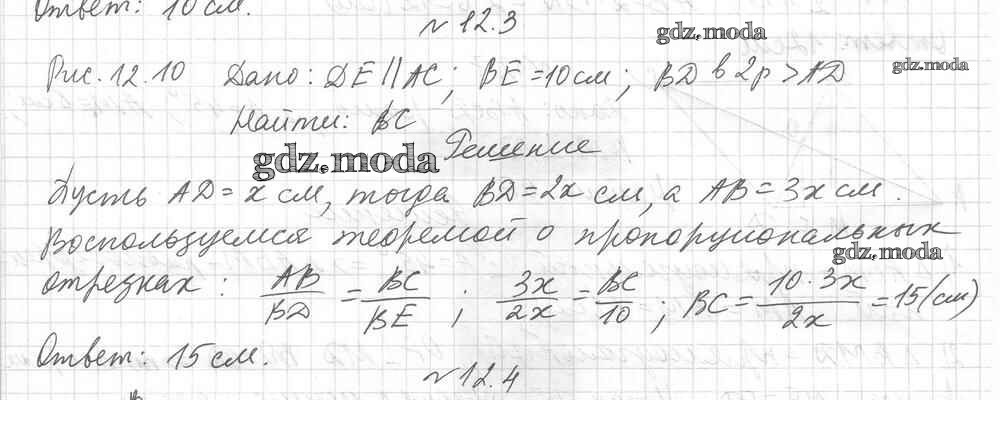 Ответ: 10 см.
№12.3
gdz.moda
Рис. 12.10 Дано: DE || AC; BE = 10 см; BD в 2р > AD
gdz.moda
Найти: BC
gdz.moda
Решение
Пусть AD = x см, тогда BD = 2x см, а AB = 3x см.
Воспользуемся теоремой о пропорциональных
gdz.moda
отрезках: AB/BD = BC/BE; 3x/2x = BC/10; BC = 10·3x/2x = 15 (см)
Ответ: 15 см.
№12.4